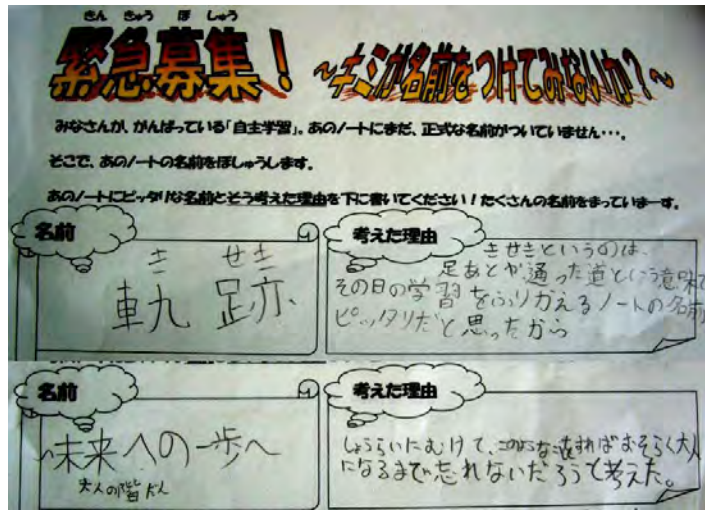 きん きゅう ぼ しゅう
緊急募集！ ～キミが名前をつけてみないか？～
みなさんが、がんばっている「自主学習」。あのノートにまだ、正式な名前がついていません・・・。
そこで、あのノートの名前をぼしゅうします。
あのノートにピッタリな名前とそう考えた理由を下に書いてください！たくさんの名前をまっていまーす。
名前
き せき
軌跡
考えた理由
きせきというのは、
足あとや通った道という意味で
その日の学習をふりかえるノートの名前
ピッタリだと思ったから
名前
未来への一歩へ
大人の階だん
考えた理由
しょうらいにむけて、このような すればおそらく大人
になるまで忘れないだろうと考えた。